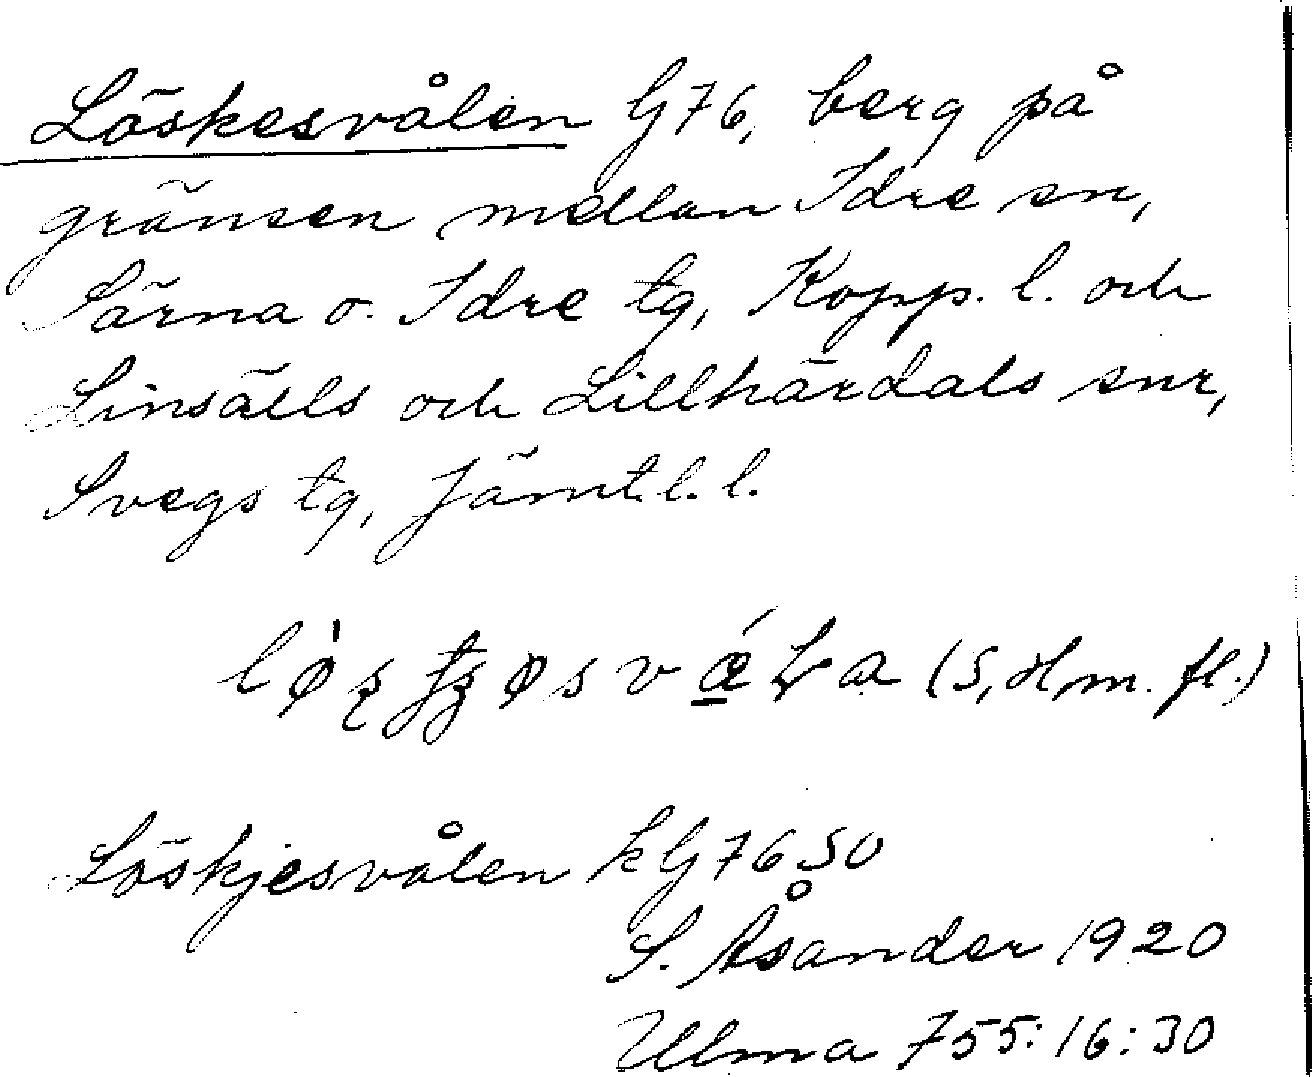 Löskesvålen G76, berg på
gränsen mellan Idre sn,
Särna o. Idre tg, Kopp. l. och
Linsälls och Lillhärdals snr,
Svegs tg, Jämtl. l.
(S, H m. fl.)
Löskjesvålen kG7650
S. Åsander 1920
Ulma 755:16:30